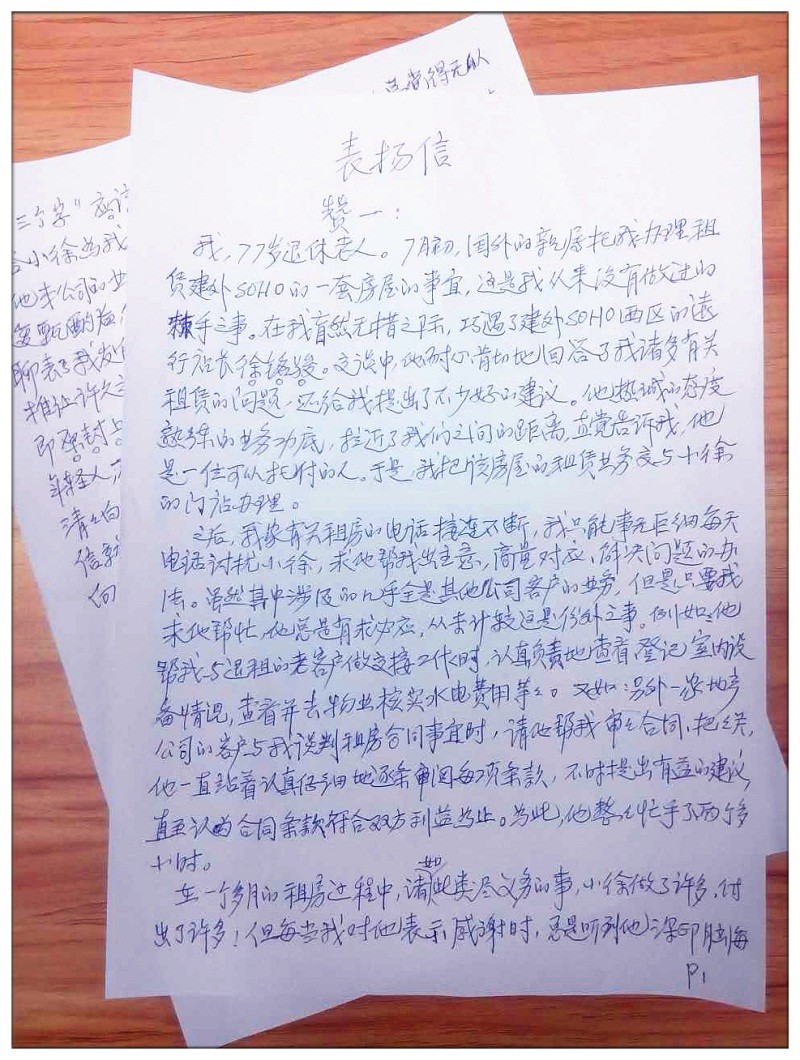 表扬信
赞一：
我，77岁退休老人。7月初，国外的亲属托我办理租
赁建外SOHO的一套房屋的事宜，这是我从来没有做过的
棘手之事。在我盲然无措之际，巧遇了建外SOHO西区的
行店长徐骏。交谈中，他耐心肯切地回答了我诸多有关
租赁的问题，还给我提出了不少好的建议。他坦诚的态度
熟练的业务功底，拉近了我们之间的距离，直觉告诉我，他
是一位可以托付的人。于是，我把该房屋的租赁业务交与小徐
的门店办理。
之后，我家有关租房的电话接连不断，我只能事无巨细每天
电话讨扰小徐，求他帮我出主意，商量对应，解决问题的办
法。虽然其中涉及的几乎全是其他公司客户的业务，但是只要我
求他帮忙，他总是有求必应，从未计较这是份外之事。例如：他
帮我与退租的老客户做交接工作时，认真负责地查看登记室内设
备情况，查看并去物业核实水电费用等等。又如：另外一家地产
公司的客户与我谈判租房合同事宜时，请他帮我审审合同，把把关，
他一直站着认真仔细地逐条审阅每项条款，不时提出有益的建议，
直至认为合同条款符合双方利益为止。为此，他整整忙乎了两个多
小时。
在一个多月的租房过程中，诸如此类尽义务的事，小徐做了许多，付
出了许多！但每当我对他表示感谢时，总是听到他深印脑海
P1
三个字"
小徐为我
他来公司的业
聊表了我
推让许久
即
年轻人
清
信
向